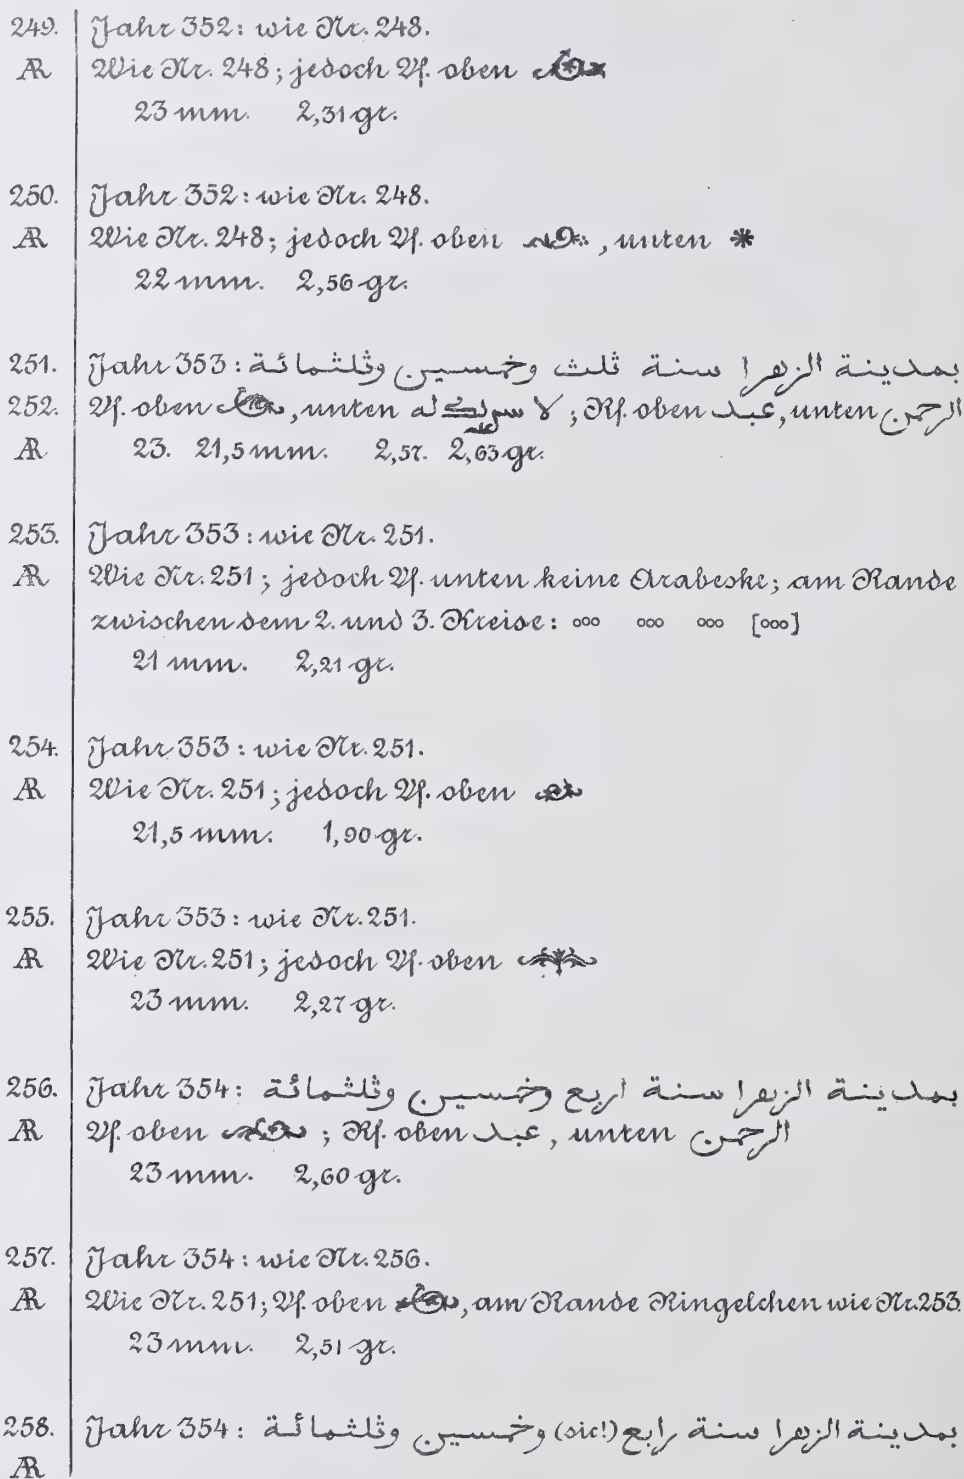 249. Jahr 352: wie Nr. 248.
AR Wie Nr. 248; jedoch Vf. oben
23 mm. 2,31 gr.
250. Jahr 352: wie Nr. 248.
AR Wie Nr. 248; jedoch Vf. oben , unten *
22 mm. 2,56 gr.
251. Jahr 353: بمدينة الزهرا سنة ثلث وخمسين وثلثمائة
252. Vf. oben , unten لا سريك له; Rf. oben عبد, unten الرحمن
AR 23. 21,5 mm. 2,57. 2,63 gr.
253. Jahr 353: wie Nr. 251.
AR Wie Nr. 251; jedoch Vf. unten keine Arabeske; am Rande
zwischen dem 2. und 3. Kreise: ooo ooo ooo [ooo]
21 mm. 2,21 gr.
254. Jahr 353: wie Nr. 251.
AR Wie Nr. 251; jedoch Vf. oben
21,5 mm. 1,90 gr.
255. Jahr 353: wie Nr. 251.
AR Wie Nr. 251; jedoch Vf. oben
23 mm. 2,27 gr.
256. Jahr 354: بمدينة الزهرا سنة اربع وخمسين وثلثمائة
AR Vf. oben ; Rf. oben عبد, unten الرحمن
23 mm. 2,60 gr.
257. Jahr 354: wie Nr. 256.
AR Wie Nr. 251; Vf. oben , am Rande Ringelchen wie Nr. 253.
23 mm. 2,51 gr.
258. Jahr 354: بمدينة الزهرا سنة رابع (sic!) وخمسين وثلثمائة
AR